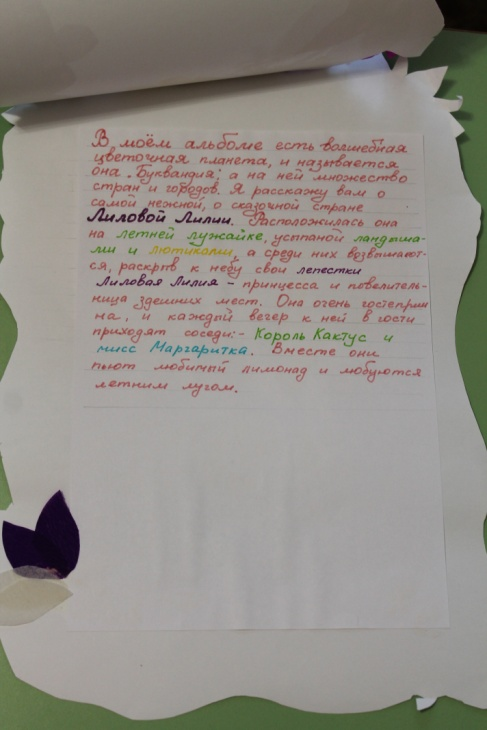 В моём альбоме есть волшебная
цветочная планета, и называется
она „Буквандия„ а на ней множество
стран и городов. Я расскажу вам о
самой нежной, о сказочной стране
Лиловой Лилии. Расположилась она
на летней лужайке, усыпаной ландыша-
ми и лютиками, а среди них возвышают-
ся, раскрыв к небу свои лепестки
Лиловая Лилия - принцесса и повелитель-
ница здешних мест. Она очень гостеприим
на, и каждый вечер к ней в гости
приходят соседи:- Король Кактус и
мисс Маргаритка. Вместе они
пьют любимый лимонад и любуются
летним лугом.